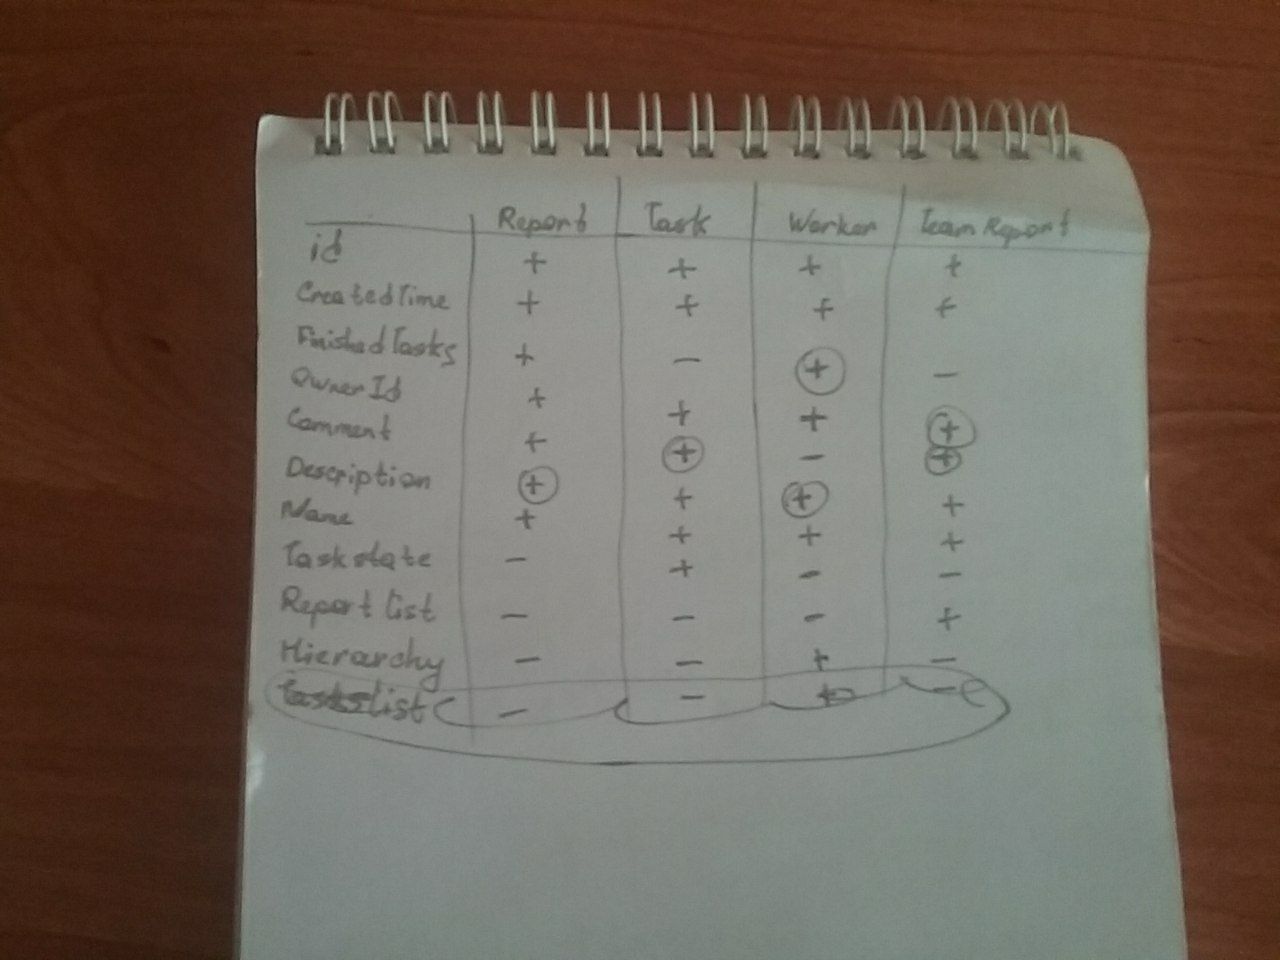 Report Task Worker Team Report
id + + + +
CreatedTime + + + +
FinishedTasks + - + -
OwnerId + + + +
Comment + + - +
Description + + + +
Name + + + +
Taskstate - + - -
Report list - - - +
Hierarchy - - + -
Taskslist - - + -